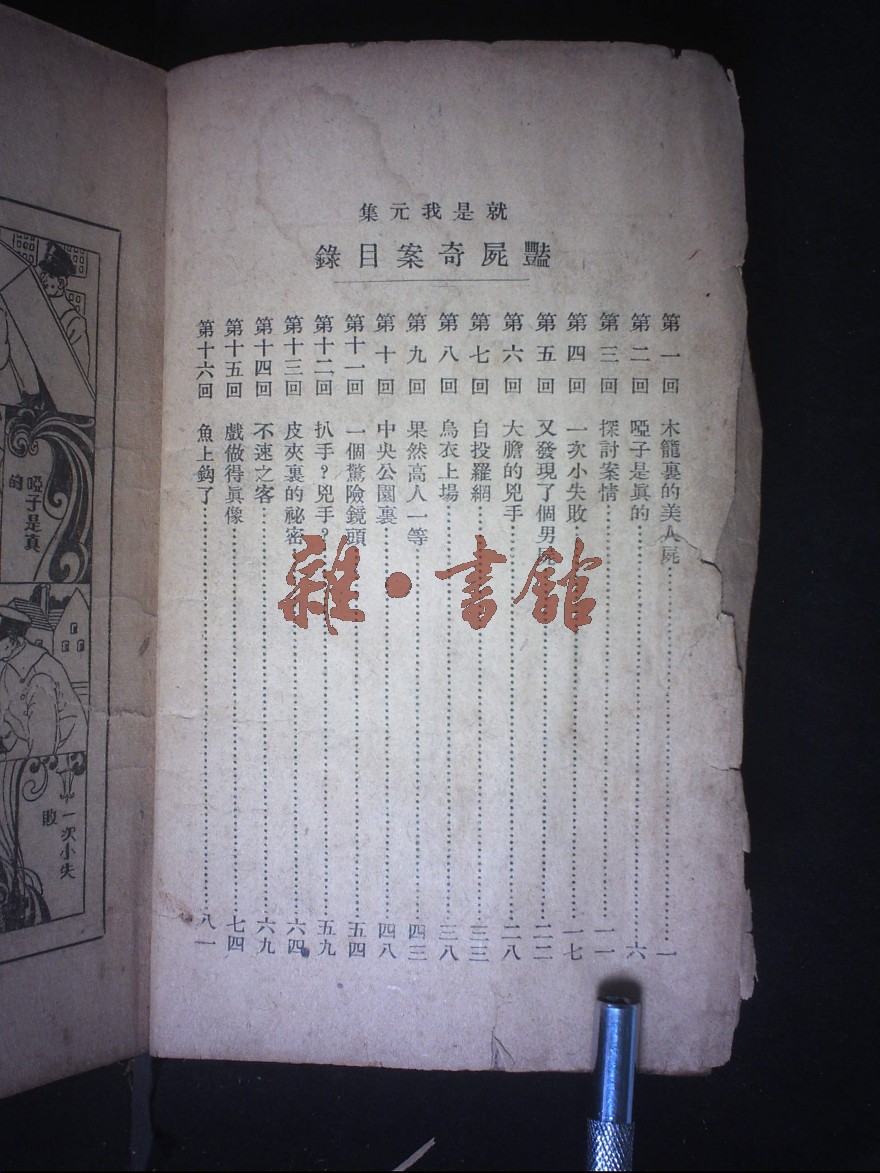 就是我元集
豔屍奇案目錄
第一回 木籠裏的美人屍 一
第二回 啞子是眞的 六
第三回 探討案情 一一
第四回 一次小失敗 一七
第五回 又發現了個男屍 二二
第六回 大膽的兇手 二八
第七回 自投羅網 三三
第八回 烏衣上場 三八
第九回 果然高人一等 四三
第十回 中央公園裏 四八
第十一回 一個驚險鏡頭 五四
第十二回 扒手？兇手？ 五九
第十三回 皮夾裏的祕密 六四
第十四回 不速之客 六九
第十五回 戲做得眞像 七四
第十六回 魚上鈎了 八一
雜·書館
啞子是真
的
一次小失
敗